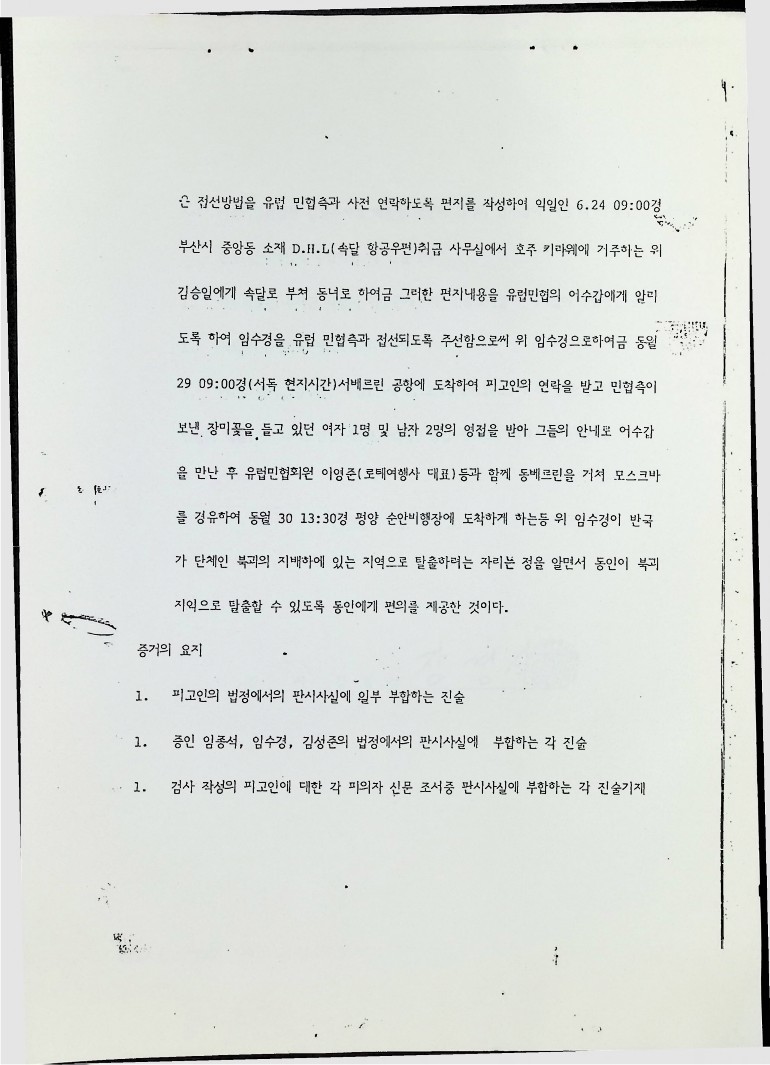 은 접선방법을 유럽 민협측과 사전 연락하도록 편지를 작성하여 익일인 6.24 09:00경
부산시 중앙동 소재 D.H.L(속달 항공우편)취급 사무실에서 호주 키라웨에 거주하는 위
김승일에게 속달로 부쳐 동녀로 하여금 그러한 편지내용을 유럽민협의 어수갑에게 알리
도록 하여 임수경을 유럽 민협측과 접선되도록 주선함으로써 위 임수경으로하여금 동월
29 09:00경(서독 현지시간)서베르린 공항에 도착하여 피고인의 연락을 받고 민협측이
보낸 장미꽃을 들고 있던 여자 1명 및 남자 2명의 영접을 받아 그들의 안네로 어수갑
을 만난 후 유럽민협회원 이영준(로테여행사 대표)등과 함께 동베르린을 거쳐 모스크바
를 경유하여 동월 30 13:30경 평양 순안비행장에 도착하게 하는등 위 임수경이 반국
가 단체인 북괴의 지배하에 있는 지역으로 탈출하려는 자라는 정을 알면서 동인이 북괴
지역으로 탈출할 수 있도록 동인에게 편의를 제공한 것이다.
증거의 요지
1. 피고인의 법정에서의 판시사실에 일부 부합하는 진술
1. 증인 임종석, 임수경, 김성준의 법정에서의 판시사실에 부합하는 각 진술
1. 검사 작성의 피고인에 대한 각 피의자 신문 조서중 판시사실에 부합하는 각 진술기재